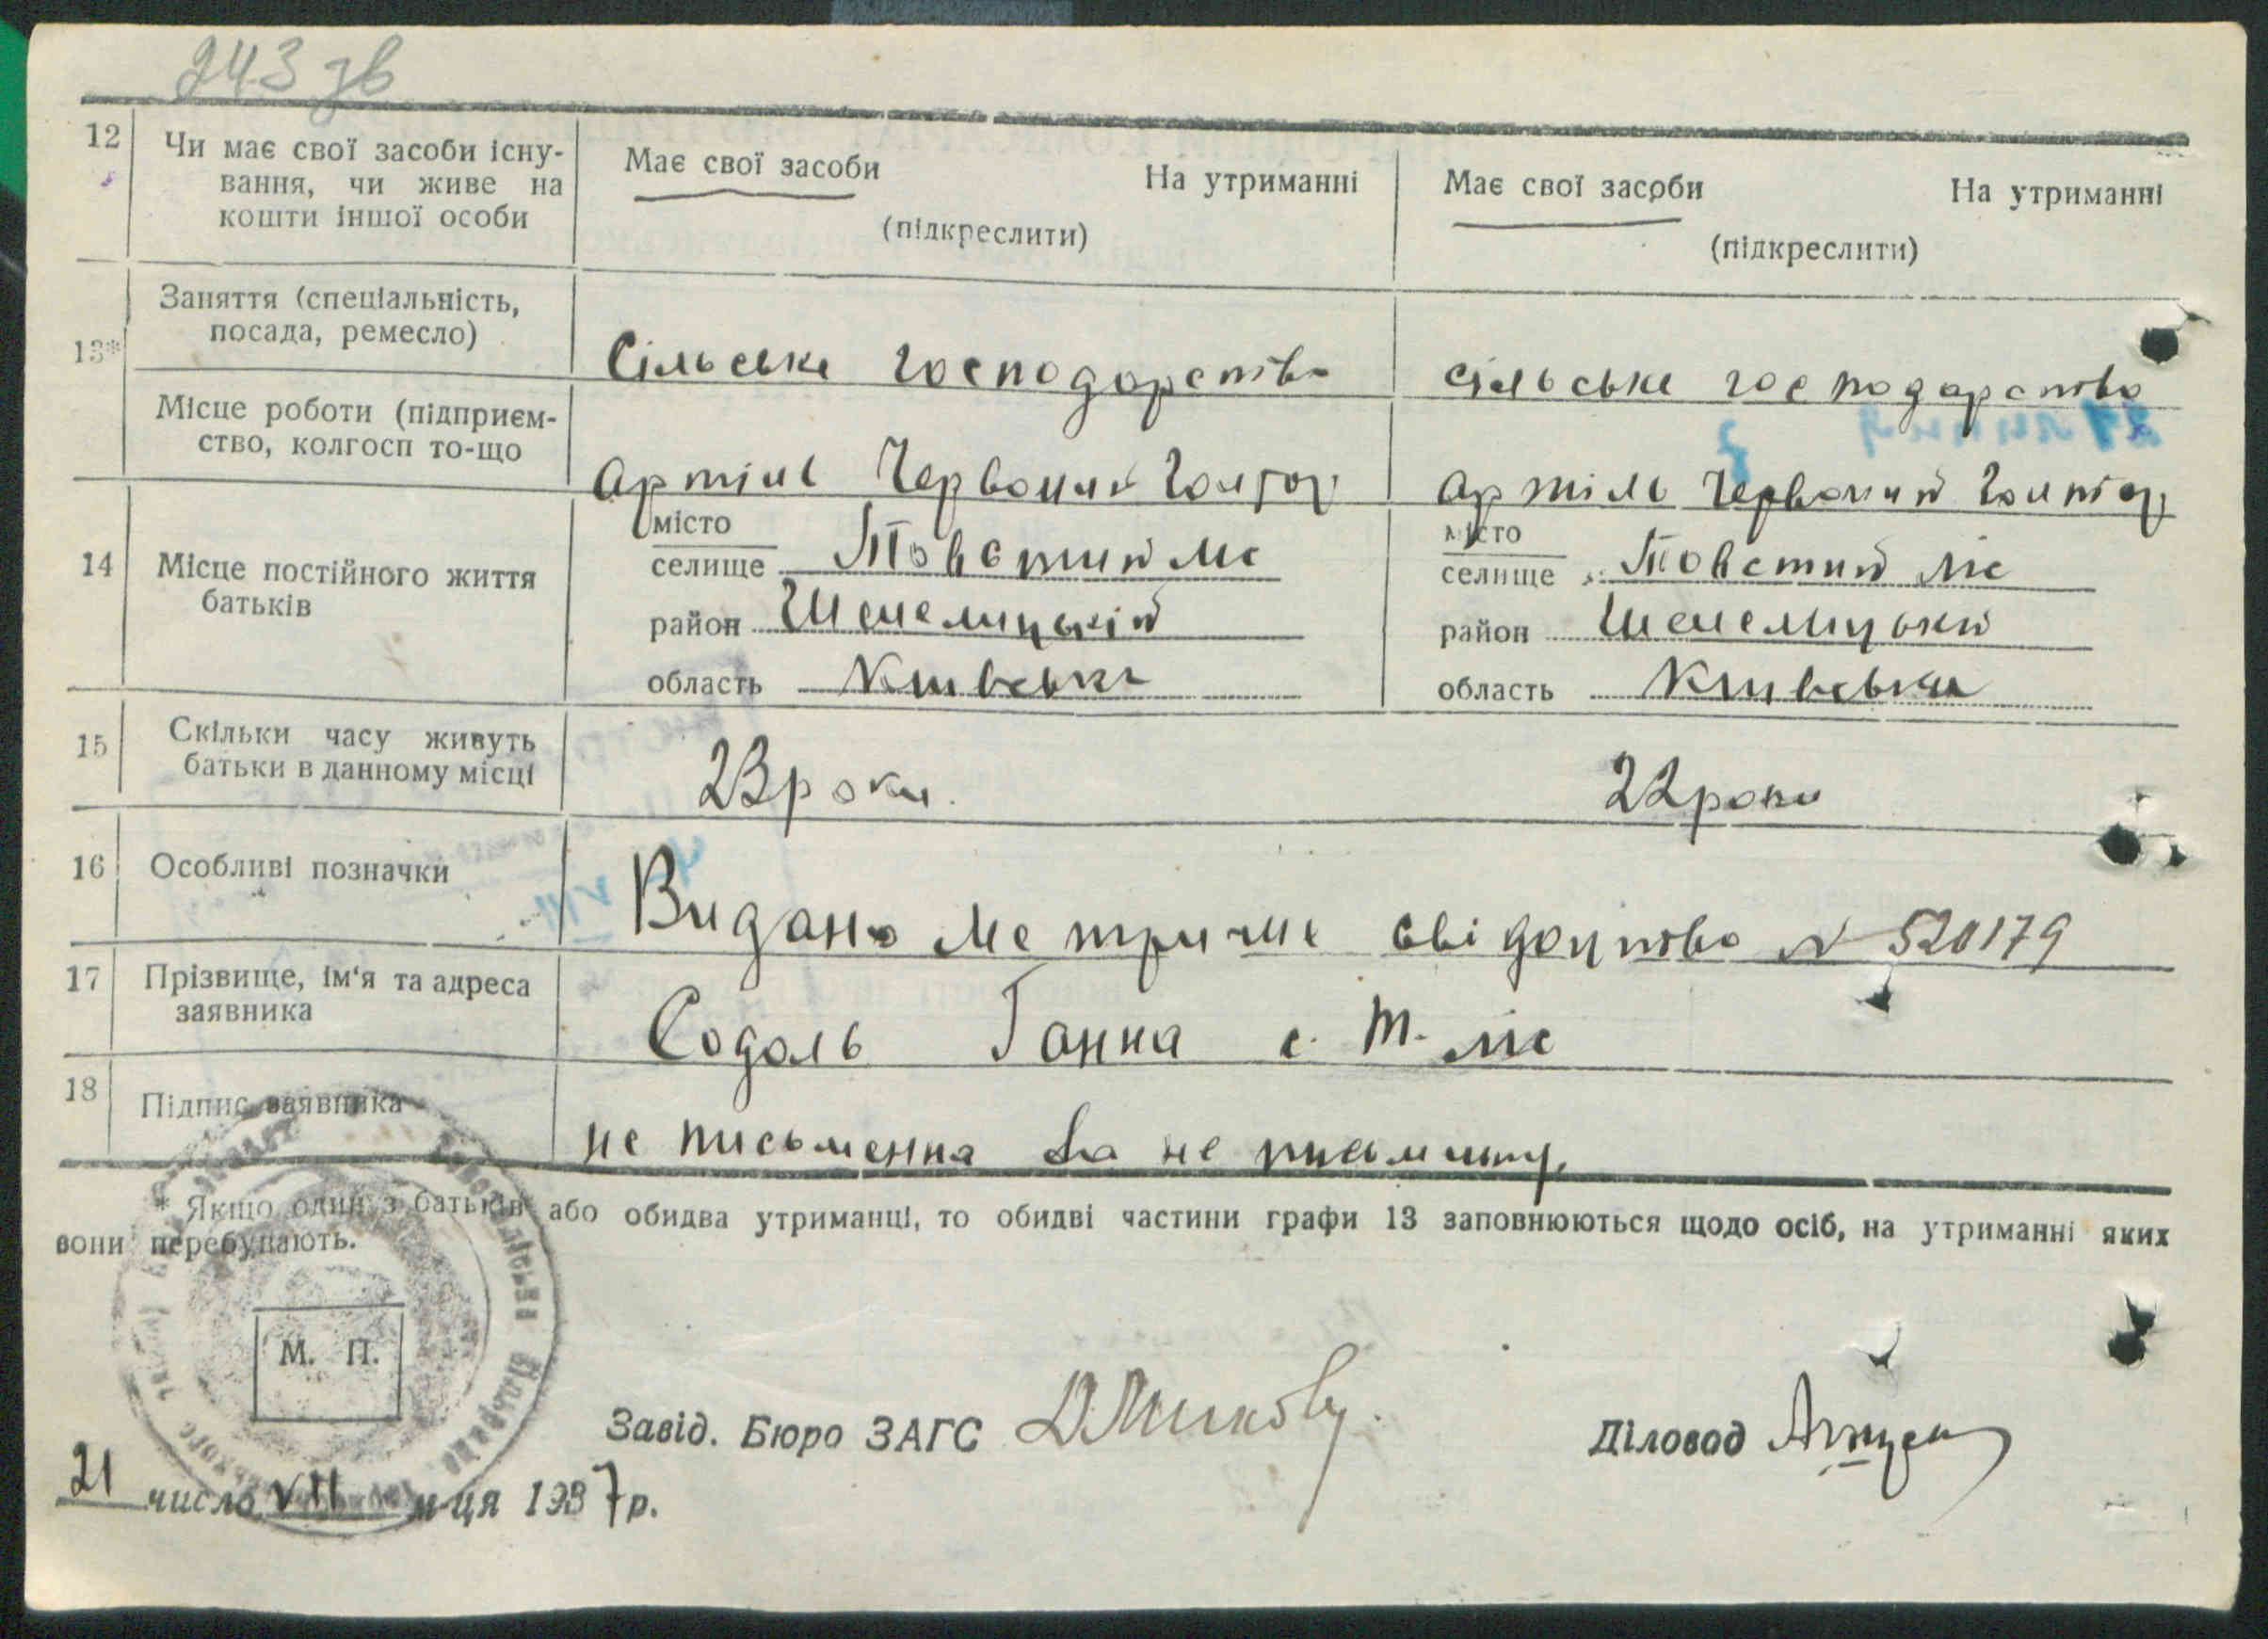 243 зв
12 Чи має свої засоби існу- Має свої засоби На утриманні Має свої засоби На утриманні
вання, чи живе на
кошти іншої особи (підкреслити) (підкреслити)
Заняття (спеціальність,
13* посада, ремесло) Сільське господарство сільське господарство
Місце роботи (підприєм-
ство, колгосп то-що Артіль Червоний Артіль Червоний
14 Місце постійного життя місто місто
батьків селище Товстий ліс селище Товстий ліс
район Шепелицький район Шепелицький
область Київська область Київська
15 Скільки часу живуть
батьки в данному місці 23 роки. 22 роки
16 Особливі позначки Видано метричне свідоцтво № 520179
17 Прізвище, ім'я та адреса
заявника Содоль Ганна с. Т. ліс
18 Підпис заявника не письменна за не письменну
* Якщо один з батьків або обидва утриманці, то обидві частини графи 13 заповнюються щодо осіб, на утриманні яких
вони перебувають.
М. П.
Завід. Бюро ЗАГС Діловод
21 число VII м-ця 1937 р.